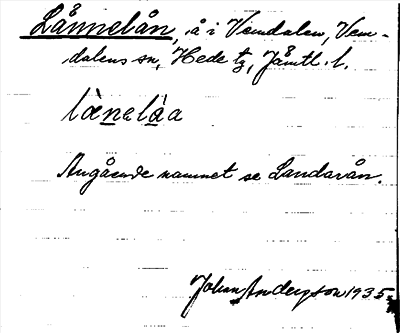 Lånnelån, å i Vemdalen, Vem-
dalens sn, Hede tg, Jämtl. l.
lænelåa
Angående namnet se Landavån.
Johan Anderson 1935.